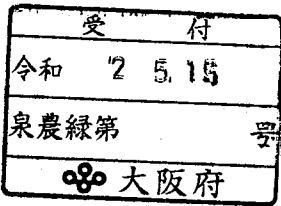 受付
令和 '2 5.15
泉農緑第 号
大阪府